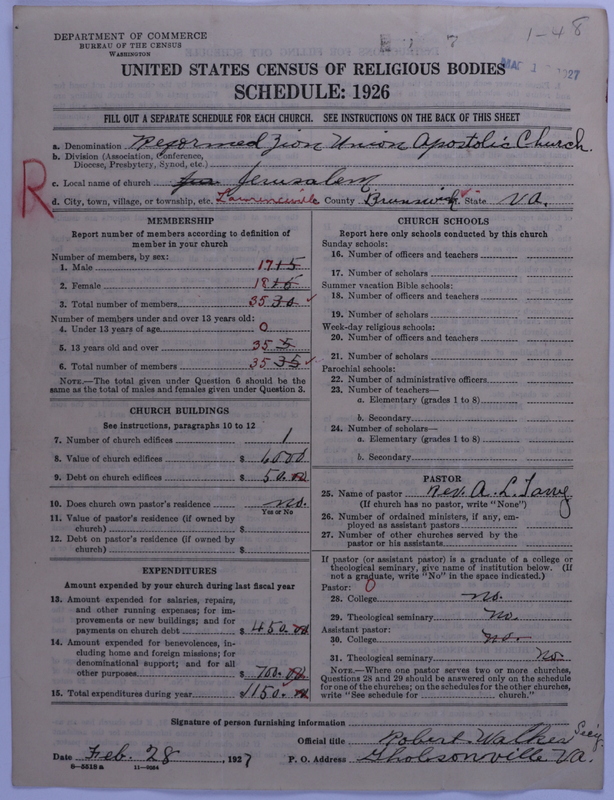 DEPARTMENT OF COMMERCE
BUREAU OF THE CENSUS
WASHINGTON
1-48
UNITED STATES CENSUS OF RELIGIOUS BODIES
SCHEDULE: 1926
FILL OUT A SEPARATE SCHEDULE FOR EACH CHURCH. SEE INSTRUCTIONS ON THE BACK OF THIS SHEET
a. Denomination Reformed Zion Union Apostolic Church.
b. Division (Association, Conference, Diocese, Presbytery, Synod, etc.)
R
c. Local name of church Jerusalem
d. City, town, village, or township, etc. Lawrenceville County Brunswick State VA.
MEMBERSHIP
Report number of members according to definition of member in your church
Number of members, by sex:
1. Male 17 15
2. Female 18 15
3. Total number of members 35 30 ✓
Number of members under and over 13 years old:
4. Under 13 years of age 0
5. 13 years old and over 35 5
6. Total number of members 35 35 ✓
NOTE.—The total given under Question 6 should be the same as the total of males and females given under Question 3.
CHURCH BUILDINGS
See instructions, paragraphs 10 to 12
7. Number of church edifices 1
8. Value of church edifices $ 6000
9. Debt on church edifices $ 50.00
10. Does church own pastor's residence no.
Yes or No
11. Value of pastor's residence (if owned by church) $
12. Debt on pastor's residence (if owned by church) $
EXPENDITURES
Amount expended by your church during last fiscal year
13. Amount expended for salaries, repairs, and other running expenses; for improvements or new buildings; and for payments on church debt $ 450.00
14. Amount expended for benevolences, including home and foreign missions; for denominational support; and for all other purposes $ 700.00
15. Total expenditures during year $ 1150.00
CHURCH SCHOOLS
Report here only schools conducted by this church
Sunday schools:
16. Number of officers and teachers
17. Number of scholars
Summer vacation Bible schools:
18. Number of officers and teachers
19. Number of scholars
Week-day religious schools:
20. Number of officers and teachers
21. Number of scholars
Parochial schools:
22. Number of administrative officers
23. Number of teachers—
a. Elementary (grades 1 to 8)
b. Secondary
24. Number of scholars—
a. Elementary (grades 1 to 8)
b. Secondary
PASTOR
25. Name of pastor Rev. A. L.
(If church has no pastor, write "None")
26. Number of ordained ministers, if any, employed as assistant pastors
27. Number of other churches served by the pastor or his assistants
If pastor (or assistant pastor) is a graduate of a college or theological seminary, give name of institution below. (If not a graduate, write "No" in the space indicated.)
Pastor: 0
28. College no.
29. Theological seminary no.
Assistant pastor:
30. College no.
31. Theological seminary no.
NOTE.—Where one pastor serves two or more churches, Questions 28 and 29 should be answered only on the schedule for one of the churches; on the schedules for the other churches, write "See schedule for church."
Signature of person furnishing information
Official title Robert Walker Sec'y
Date Feb. 28, 1927 P. O. Address Gholsonville Va.
8-5518a 11-9084